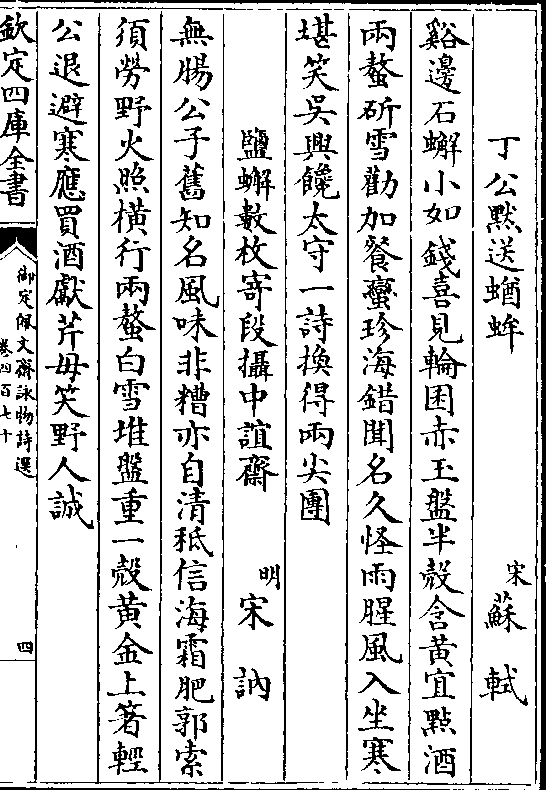 丁公默送蝤蛑 宋 蘇軾
谿邊石蠏小如錢喜見輪囷赤玉盤半殻含黄宜點酒
兩螯斫雪勸加餐蠻珍海錯聞名久怪雨腥風入坐寒
堪笑吳興饞太守一詩換得兩尖團
鹽蠏數枚寄段攝中誼齋 明 宋訥
無腸公子舊知名風味非糟亦自清秪信海霜肥郭索
須勞野火照橫行兩螯白雪堆盤重一殻黄金上箸輕
公退避寒應買酒獻芹毋笑野人誠
欽定四庫全書
御定佩文齋詠物詩選
卷四百七十
四